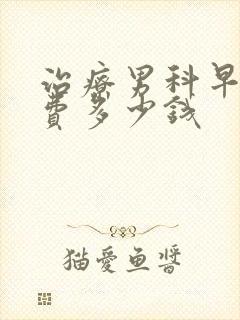 治療男科早
費多少錢
猫愛魚醬